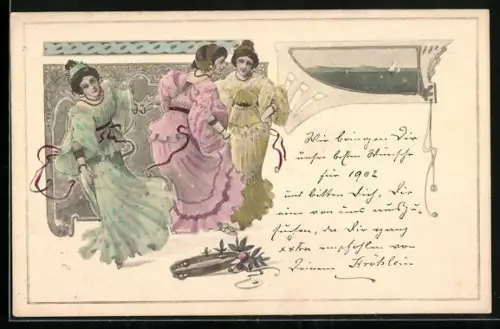 Wir bringen Dir
unsre besten Wünsche
für 1902
und bitten Dich, Dir
eine von uns auszu-
suchen, da Dir ganz
extra empfohlen von
Deinem